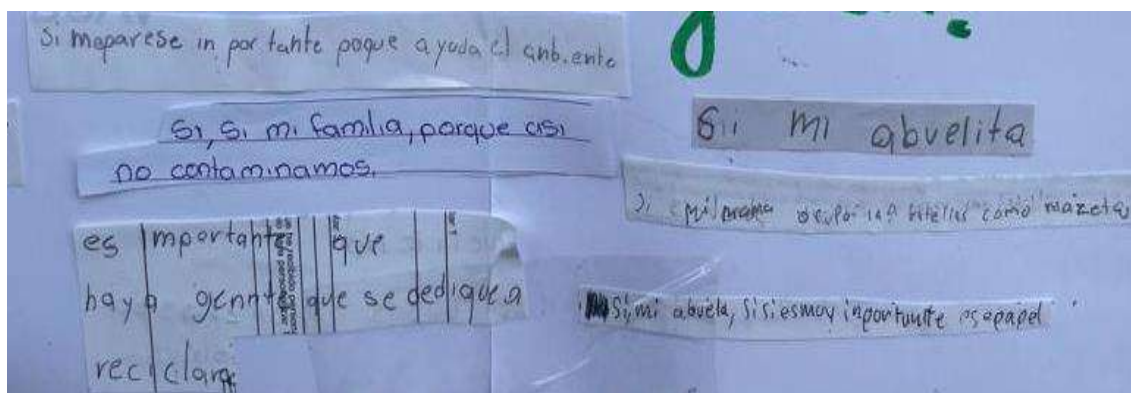 Si meparese in por tante poque ayuda el anbiente
Si, Si mi familia, porque asi
no contaminamos.
es importante que
haya gennte que se dedique a
reciclar
Si mi abuelita
Si mi mama ocupa las botellas como mazeta
Si, mi abuela, si si es muy inportante ese papel